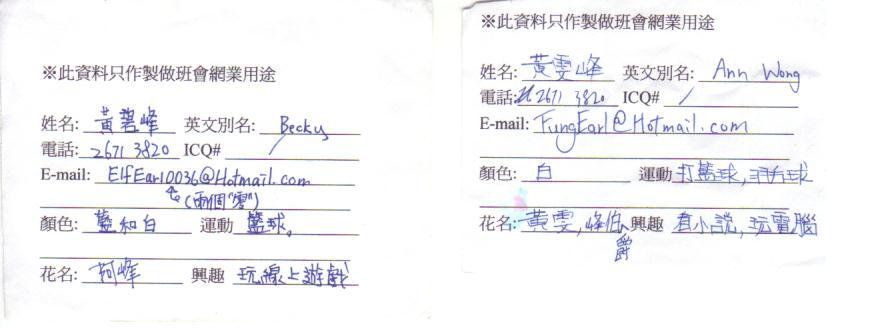 ※此資料只作製做班會網業用途
姓名: 黃碧峰 英文別名: Becky
電話: 2671 3820 ICQ# /
E-mail: ElfEar10036@Hotmail.com
(兩個"零")
顏色: 藍和白 運動 籃球。
花名: 阿峰 興趣 玩線上遊戲
※此資料只作製做班會網業用途
姓名: 黃雯峰 英文別名: Ann Wong
電話: 2671 3820 ICQ# /
E-mail: FungEarl@Hotmail.com
顏色: 白 運動 打籃球,羽球
花名: 黃雯,峰伯爵 興趣 看小說,玩電腦